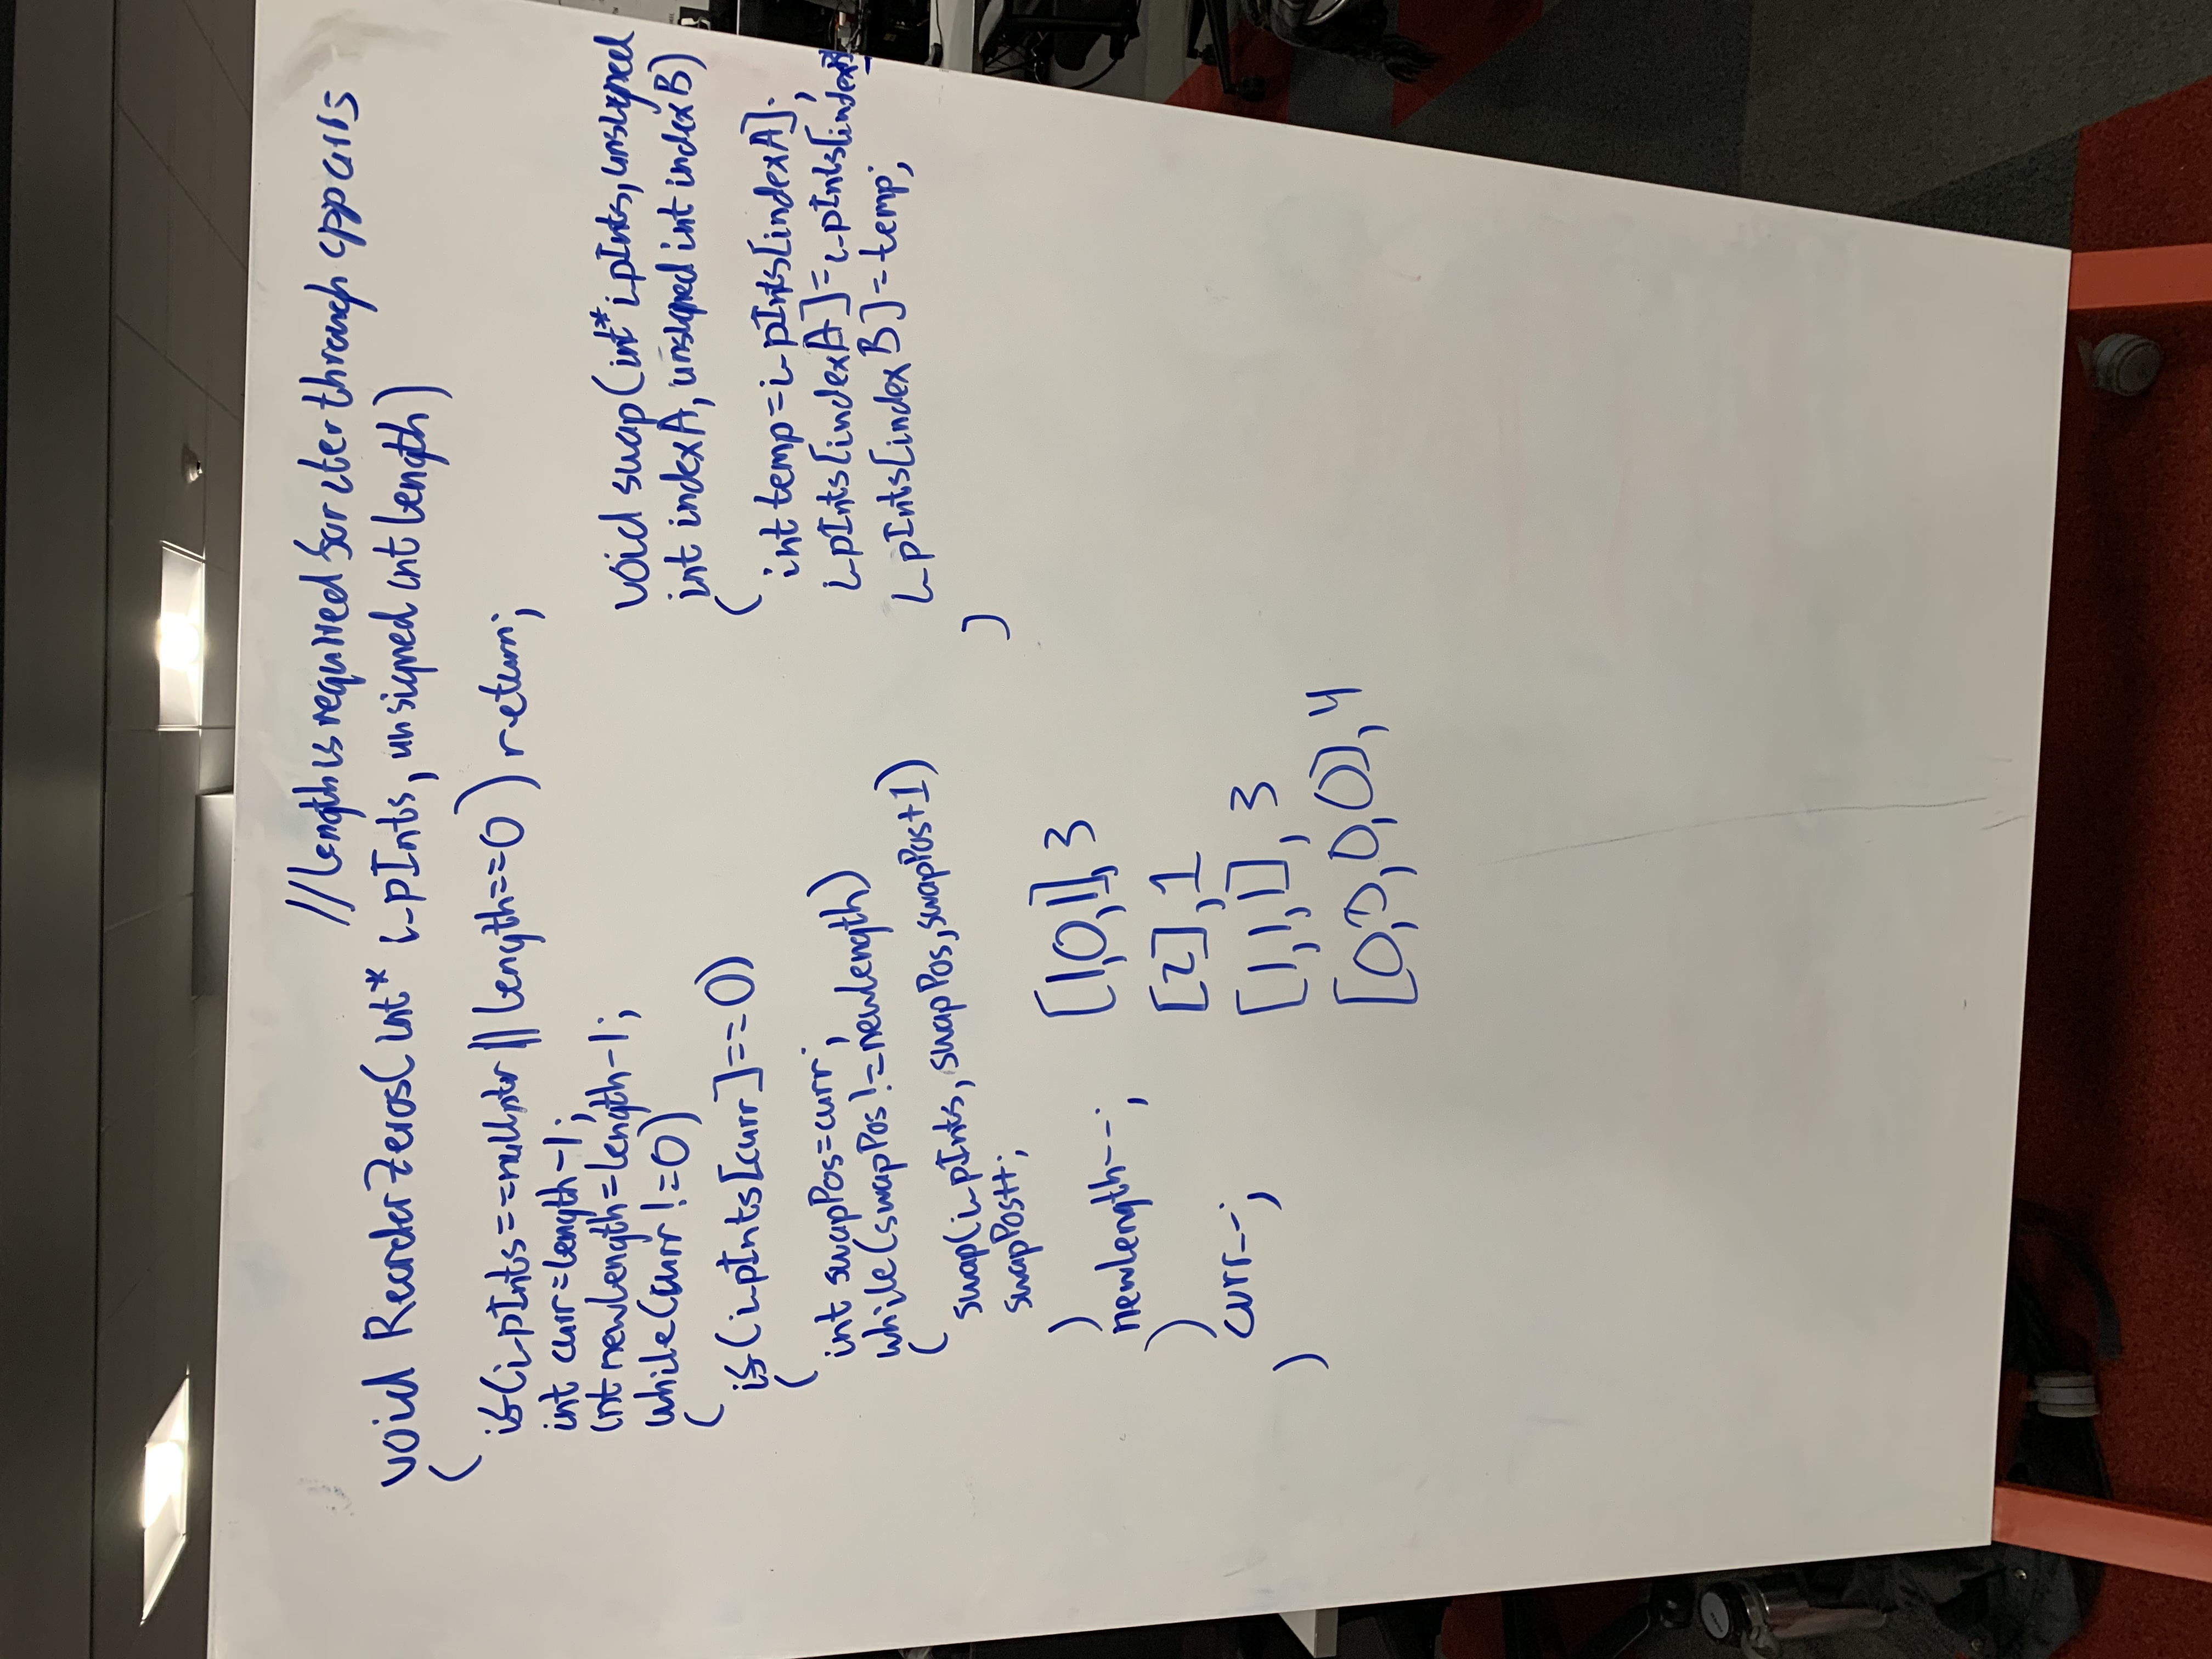 //length is required for iter through cpp arrs
void ReorderZeros(int* i_pInts, unsigned int length)
(
if(i_pInts==nullptr || length==0) return;
int curr=length-1;
int newLength=length-1;
while(curr!=0)
(
if(i_pInts[curr]==0)
(
int swapPos=curr;
while(swapPos!=newlength)
(
swap(i_pInts, swapPos, swapPos+1)
swapPos++;
)
newlength--;
)
curr--;
)
void swap(int* i_pInts, unsigned
int indexA, unsigned int indexB)
(
int temp=i_pInts[indexA];
i_pInts[indexA]=i_pInts[indexB]
i_pInts[indexB]=temp;
)
[1,0,1], 3
[2], 1
[1,1,1], 3
[0,0,0,0], 4